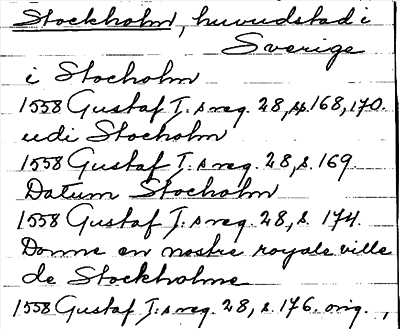 Stockholm, huvudstad i
Sverige
i Stocholm
1558 Gustaf I:s reg. 28, ss. 168, 170.
udi Stocholm
1558 Gustaf I:s reg. 28, s. 169.
Datum Stocholm
1558 Gustaf I:s reg. 28, s. 174.
Donne en nostre royale ville
de Stockholme
1558 Gustaf I:s reg. 28, s. 176. orig.,